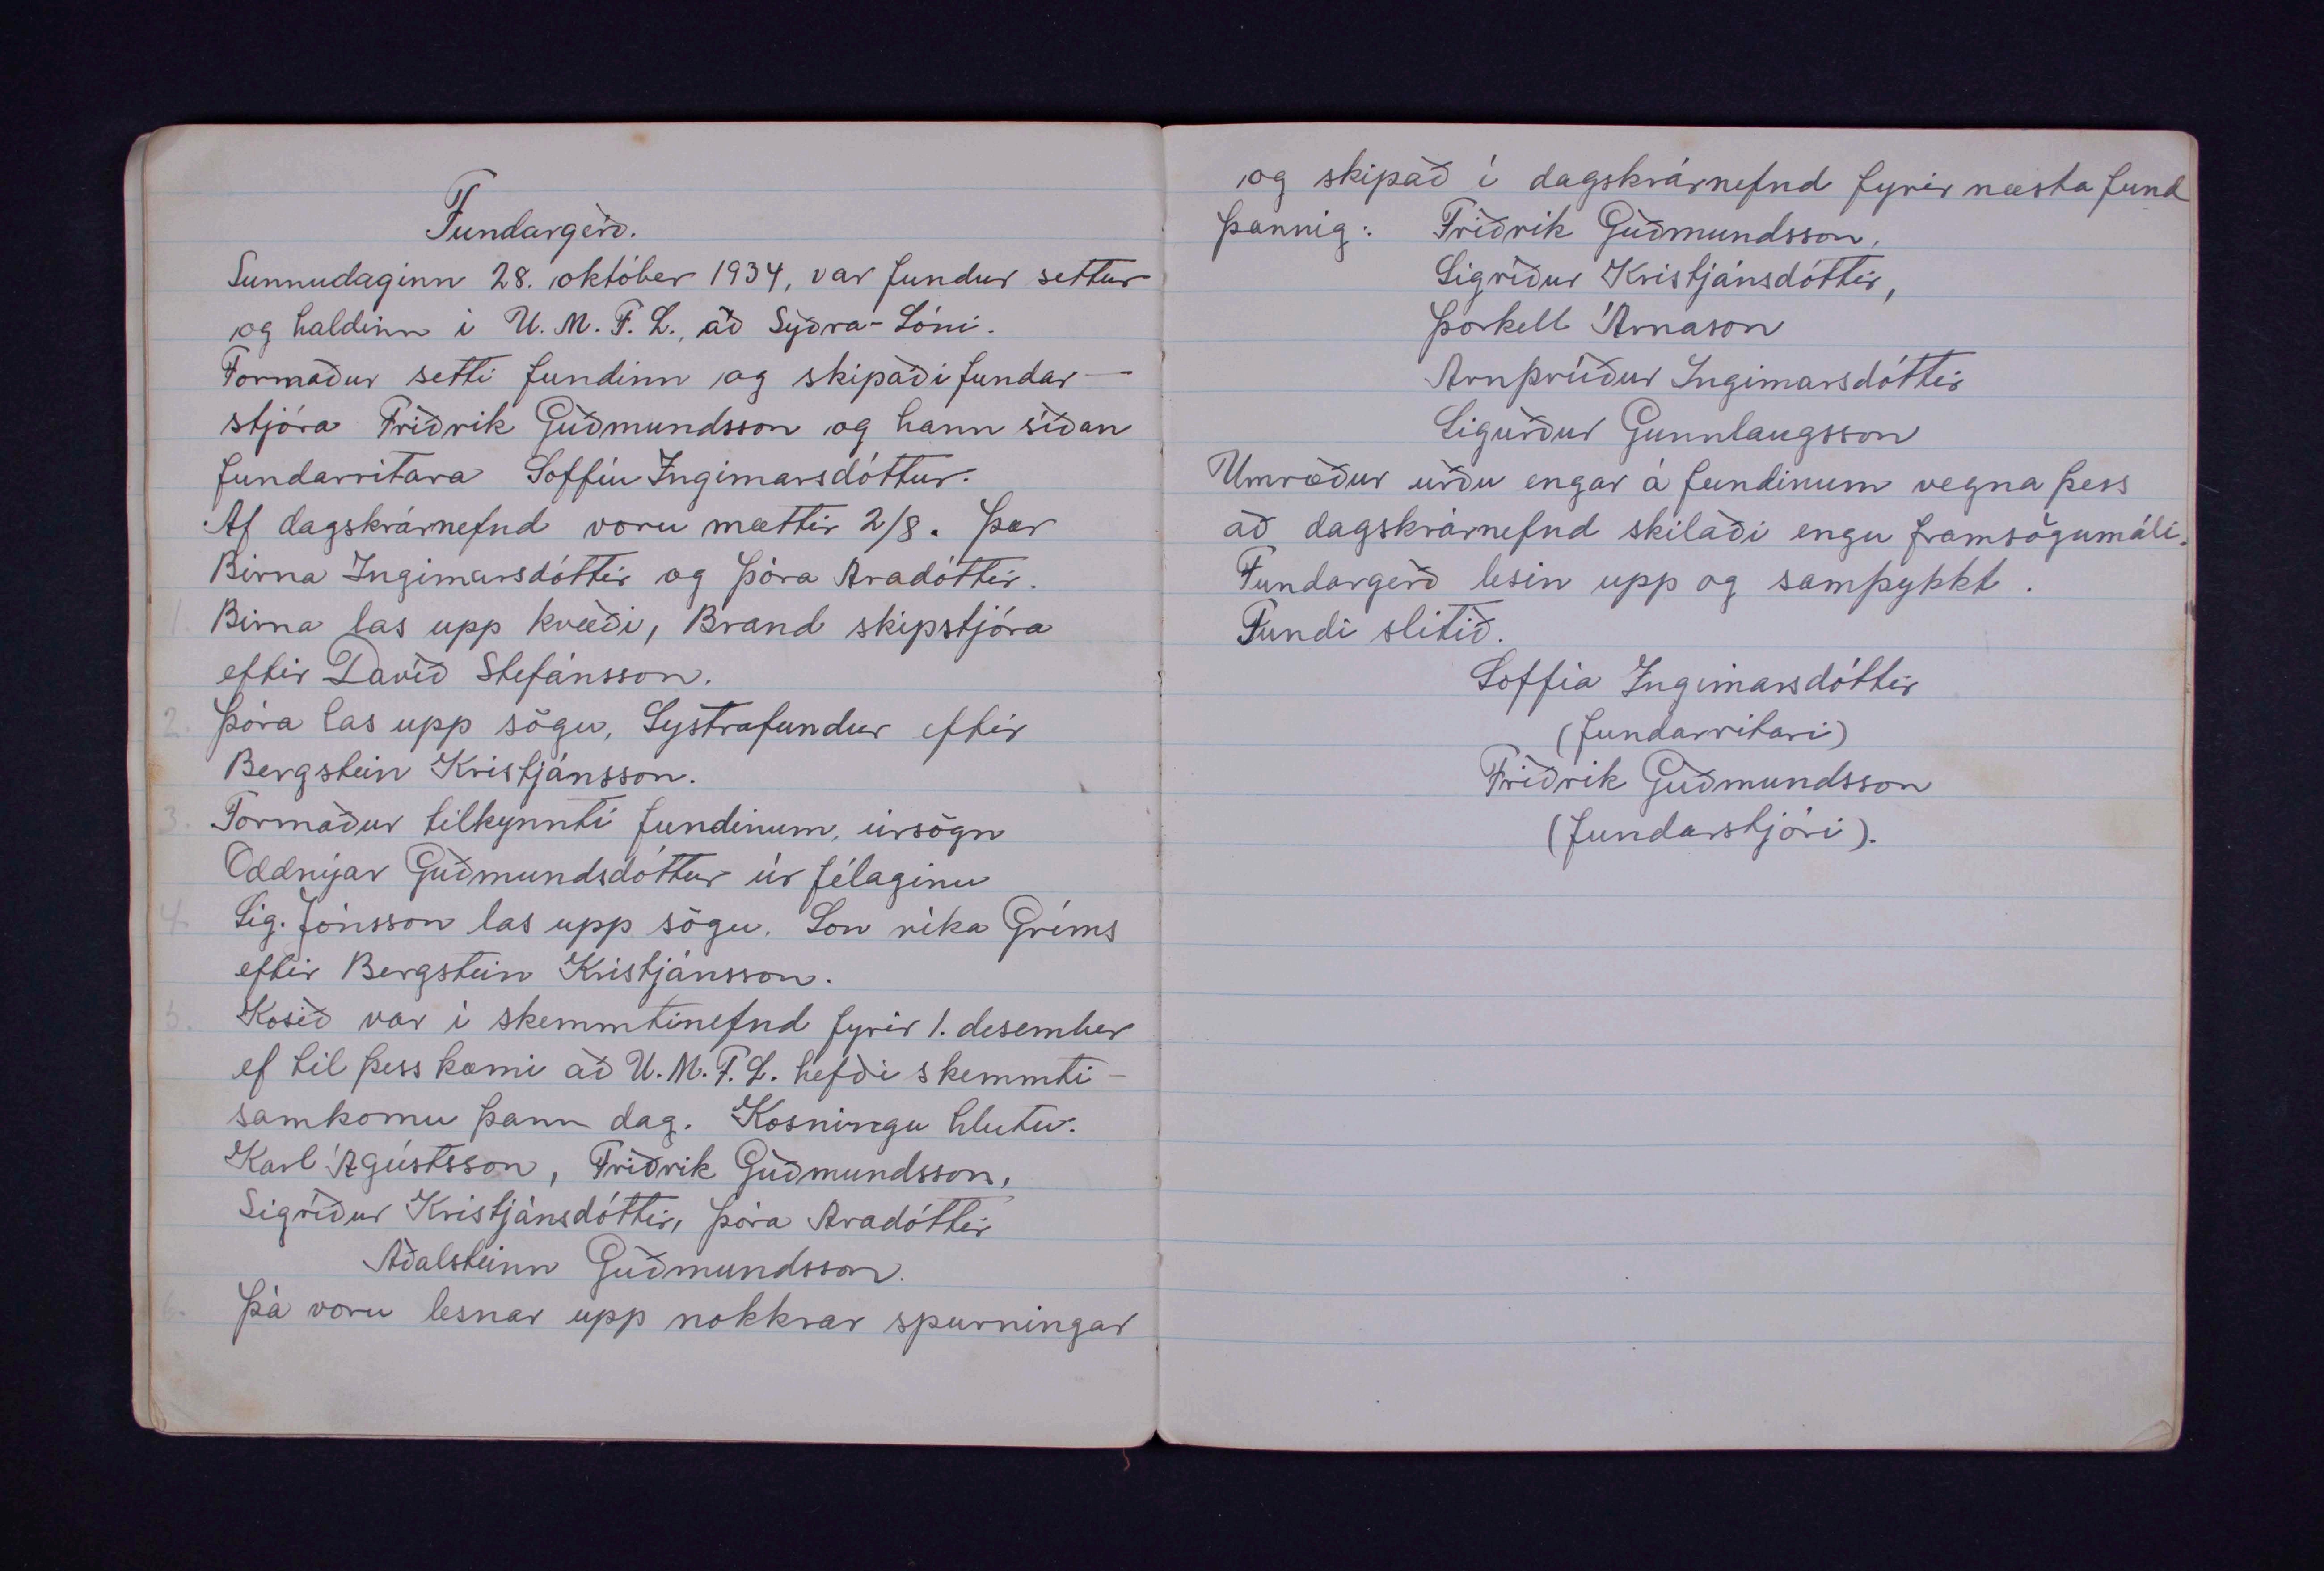 Fundargerð.
Sunnudaginn 28. október 1934, var fundur settur
og haldinn í U. M. F. L., að Syðra-Lóni.
Formaður setti fundinn og skipaði fundar-
stjóra Friðrik Guðmundsson og hann síðan
fundarritara Soffíu Ingimarsdóttur.
Af dagskrárnefnd voru mættir 2/8. Þær
Birna Ingimarsdóttir og Þóra Aradóttir.
1. Birna las upp kvæði, Brand skipstjóra
eftir Davíð Stefánsson.
2. Þóra las upp sögu, Systrafundur eftir
Bergstein Kristjánsson.
3. Formaður tilkynnti fundinum, úrsögn
Oddnýjar Guðmundsdóttur úr félaginu
4. Sig. Jónsson las upp sögu. Son ríka Gríms
eftir Bergstein Kristjánsson.
5. Kosið var í skemmtinefnd fyrir 1. desember
ef til þess kæmi að U. M. F. L. hefði skemmti-
samkomu þann dag. Kosningu hlutu:
Karl Ágústsson, Friðrik Guðmundsson,
Sigríður Kristjánsdóttir, Þóra Aradóttir
Aðalsteinn Guðmundsson.
6. Þá voru lesnar upp nokkrar spurningar
og skipað í dagskrárnefnd fyrir næsta fund
þannig: Friðrik Guðmundsson,
Sigríður Kristjánsdóttir,
Þorkell Árnason
Arnþrúður Ingimarsdóttir
Sigurður Gunnlaugsson
Umræður urðu engar á fundinum vegna þess
að dagskrárnefnd skilaði engu framsögumáli.
Fundargerð lesin upp og samþykkt.
Fundi slitið.
Soffía Ingimarsdóttir
(fundarritari)
Friðrik Guðmundsson
(fundarstjóri).